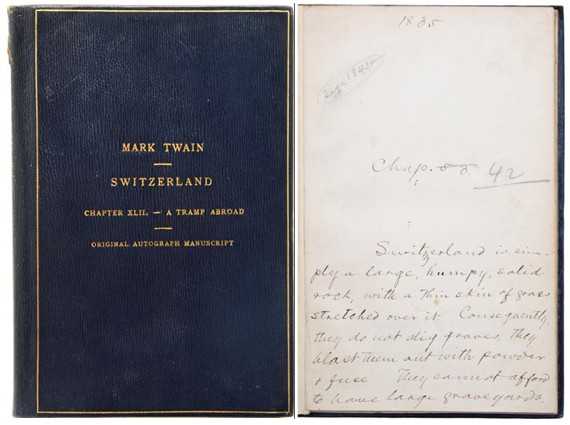 MARK TWAIN
SWITZERLAND
CHAPTER XLII. — A TRAMP ABROAD
ORIGINAL AUTOGRAPH MANUSCRIPT
1835
Chap. 42
Switzerland is sim-
ply a large, humpy, solid
rock, with a thin skin of grass
stretched over it. Consequently,
they do not dig graves, they
blast them out with powder
& fuse. They cannot afford
to have large graveyards,